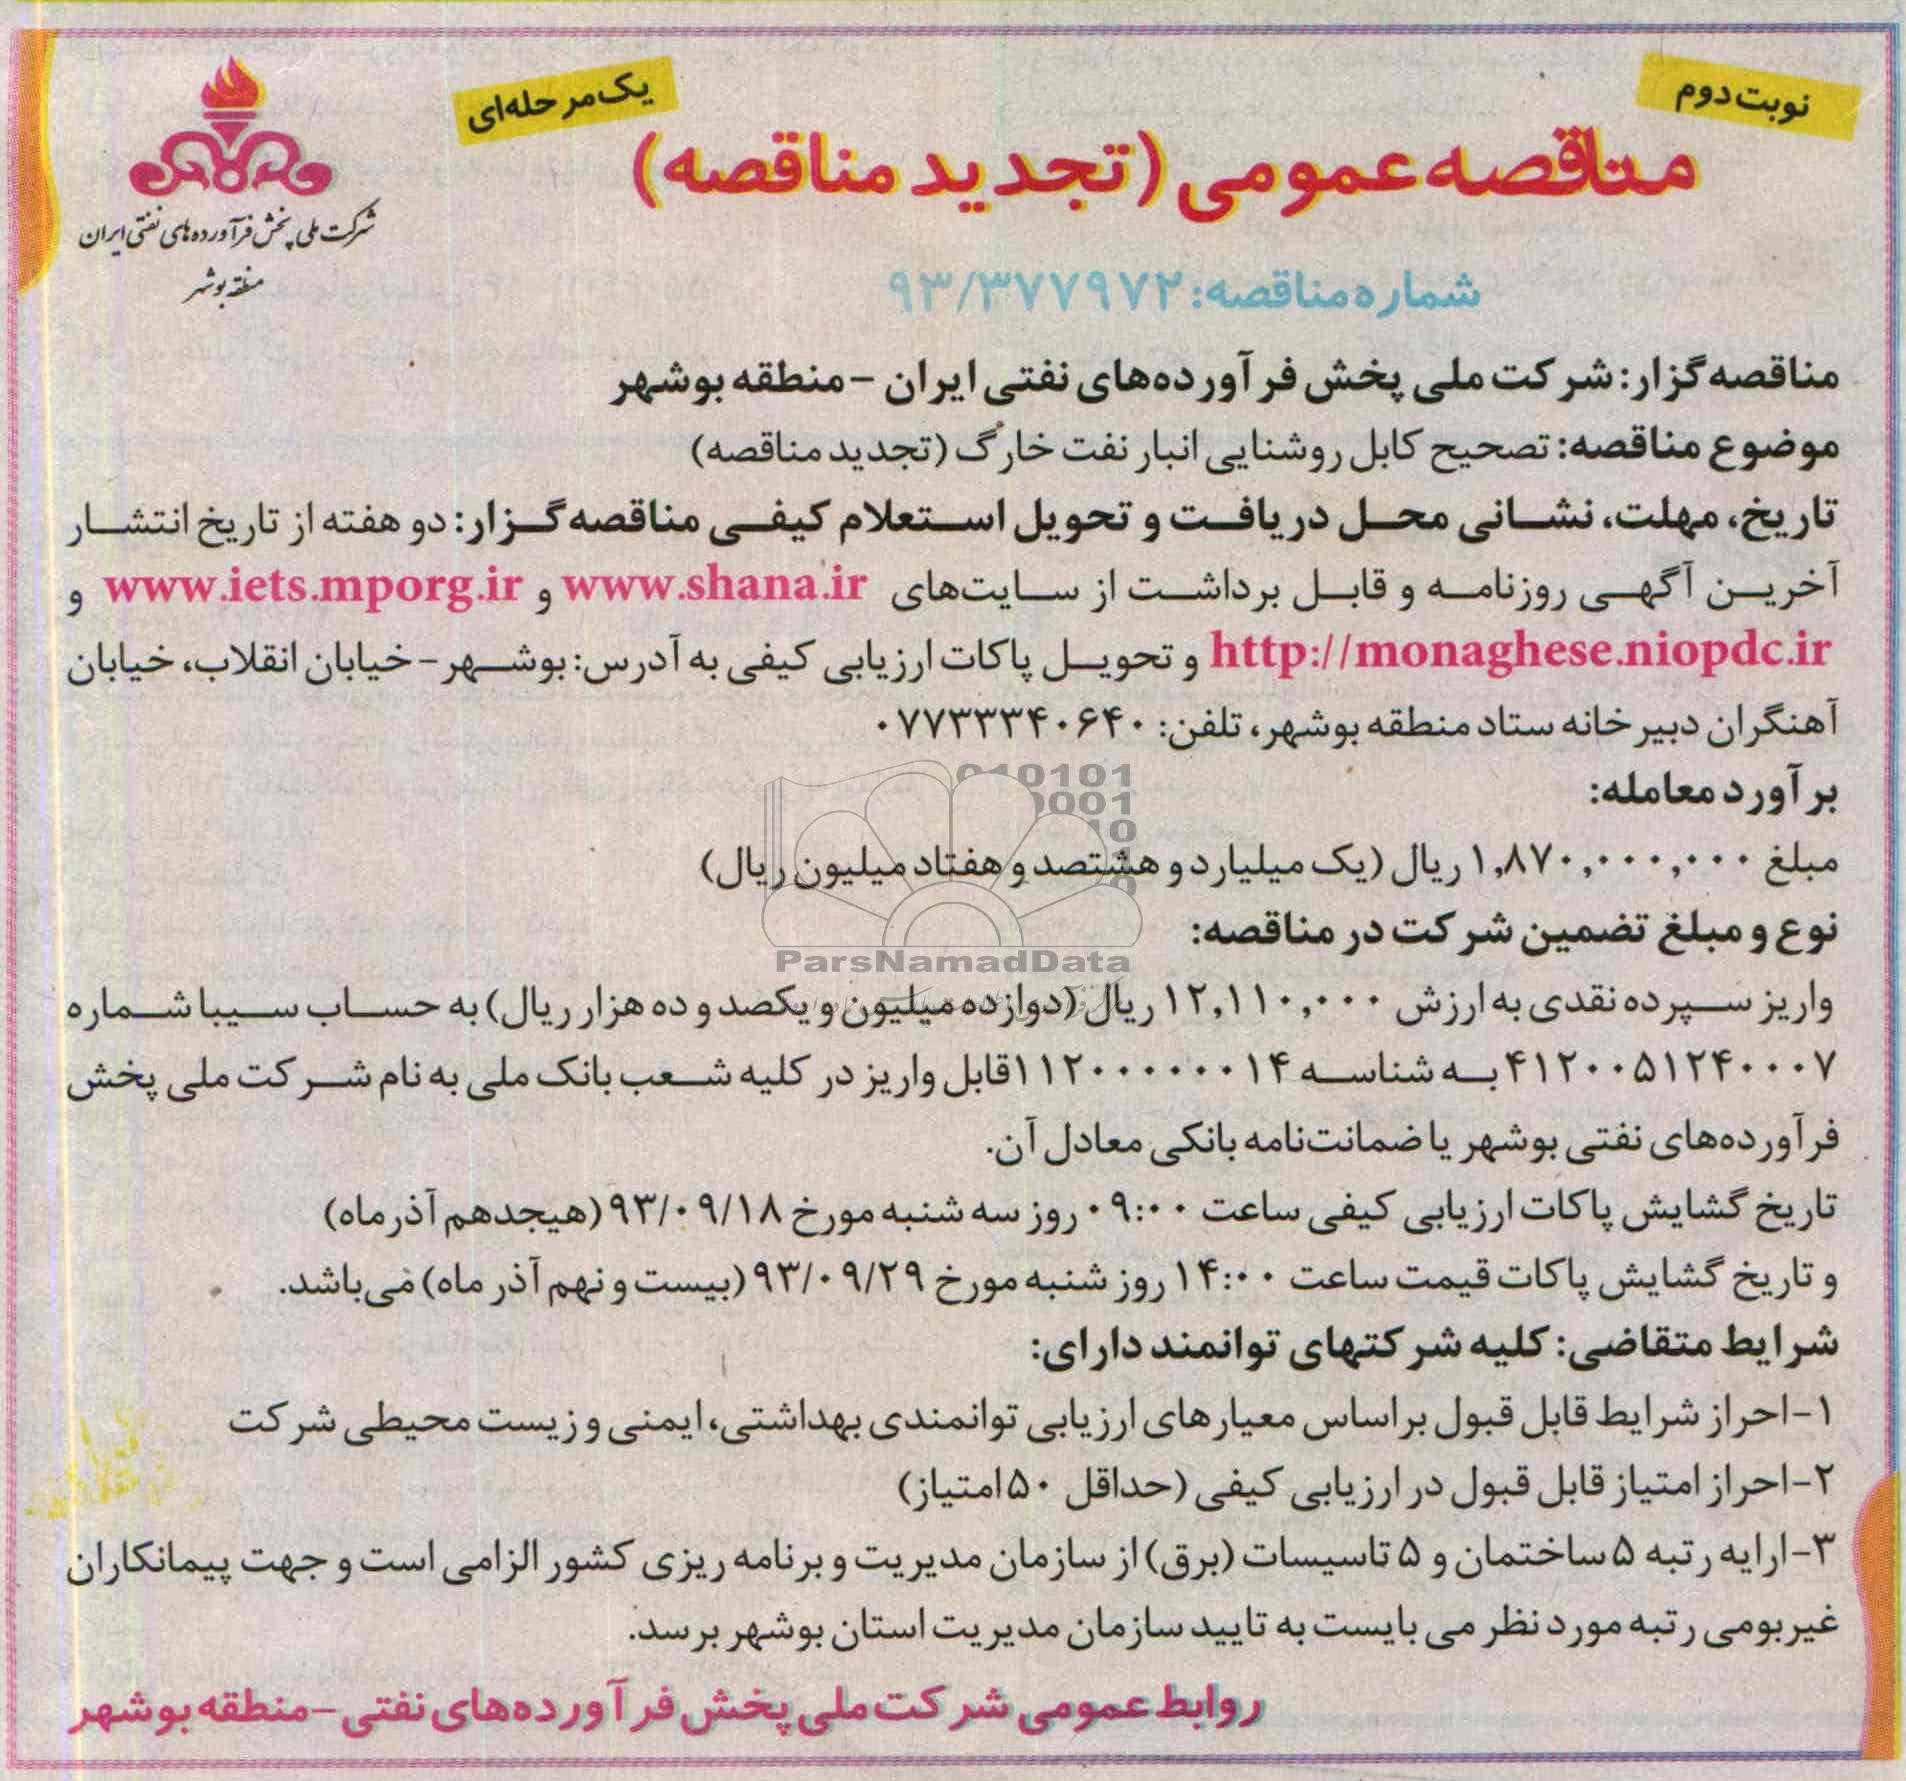 نوبت دوم
یک مرحله‌ای
مناقصه عمومی (تجدید مناقصه)
شرکت ملی پخش فرآورده‌های نفتی ایران
منطقه بوشهر
شماره مناقصه: ۹۳/۳۷۷۹۷۲
مناقصه گزار: شرکت ملی پخش فرآورده‌های نفتی ایران - منطقه بوشهر
موضوع مناقصه: تصحیح کابل روشنایی انبار نفت خارگ (تجدید مناقصه)
تاریخ، مهلت، نشانی محل دریافت و تحویل استعلام کیفی مناقصه گزار: دو هفته از تاریخ انتشار
آخرین آگهی روزنامه و قابل برداشت از سایت‌های www.shana.ir و www.iets.mporg.ir و
http://monaghese.niopdc.ir و تحویل پاکات ارزیابی کیفی به آدرس: بوشهر - خیابان انقلاب، خیابان
آهنگران دبیرخانه ستاد منطقه بوشهر، تلفن: ۰۷۷۳۳۳۴۰۶۴۰
برآورد معامله:
مبلغ ۱,۸۷۰,۰۰۰,۰۰۰ ریال (یک میلیارد و هشتصد و هفتاد میلیون ریال)
نوع و مبلغ تضمین شرکت در مناقصه:
ParsNamadData
واریز سپرده نقدی به ارزش ۱۲,۱۱۰,۰۰۰ ریال (دوازده میلیون و یکصد و ده هزار ریال) به حساب سیبا شماره
۴۱۲۰۰۵۱۲۴۰۰۰۷ به شناسه ۱۱۲۰۰۰۰۰۰۰۱۴ قابل واریز در کلیه شعب بانک ملی به نام شرکت ملی پخش
فرآورده‌های نفتی بوشهر یا ضمانت‌نامه بانکی معادل آن.
تاریخ گشایش پاکات ارزیابی کیفی ساعت ۰۹:۰۰ روز سه شنبه مورخ ۹۳/۰۹/۱۸ (هیجدهم آذرماه)
و تاریخ گشایش پاکات قیمت ساعت ۱۴:۰۰ روز شنبه مورخ ۹۳/۰۹/۲۹ (بیست و نهم آذر ماه) می‌باشد.
شرایط متقاضی: کلیه شرکتهای توانمند دارای:
۱-احراز شرایط قابل قبول براساس معیارهای ارزیابی توانمندی بهداشتی، ایمنی و زیست محیطی شرکت
۲-احراز امتیاز قابل قبول در ارزیابی کیفی (حداقل ۵۰ امتیاز)
۳-ارایه رتبه ۵ ساختمان و ۵ تاسیسات (برق) از سازمان مدیریت و برنامه ریزی کشور الزامی است و جهت پیمانکاران
غیربومی رتبه مورد نظر می بایست به تایید سازمان مدیریت استان بوشهر برسد.
روابط عمومی شرکت ملی پخش فرآورده‌های نفتی - منطقه بوشهر